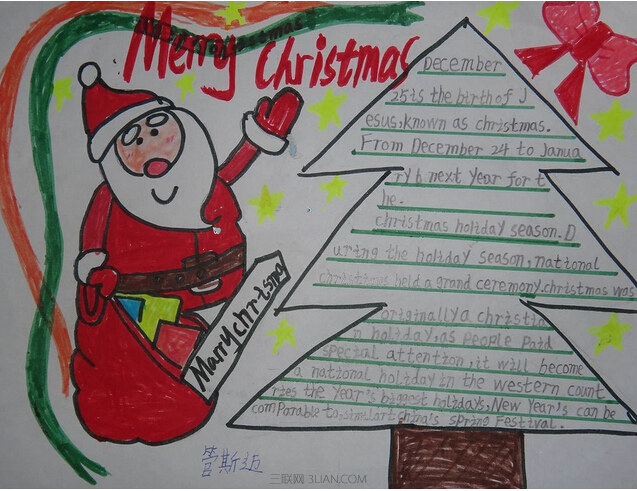 Merry Christmas
December
25is the birth of J
esus,known as christmas.
From December 24 to Janua
ry 6 next year for t
he.
christmas holiday season.D
uring the holiday season,national
christians held a grand ceremony.christmas was
originally a christia
n holiday,as people paid
special attention,it will become
a national holiday in the western count
ries the year's biggest holidays,New year's can be
comparable to,similar to china's spring Festival.
Marry christmas
管斯迈
三联网 3LIAN.COM